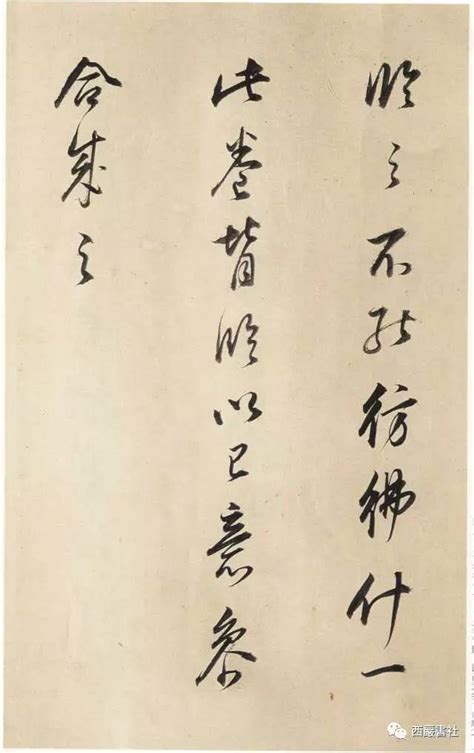 臨之不能彷彿什一
此卷皆臨以己意參
合成之
西嚴書社